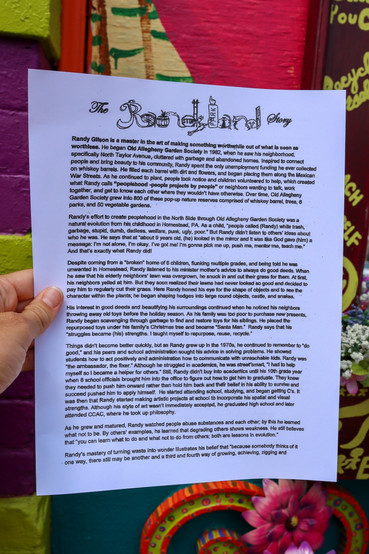 YOU C
The Randyland Story
PARK
Randy Gilson is a master in the art of making something worthwhile out of what is seen as
worthless. He began Old Allegheny Garden Society in 1982, when he saw his neighborhood,
specifically North Taylor Avenue, cluttered with garbage and abandoned homes. Inspired to connect
people and bring beauty to his community, Randy spent the only unemployment funding he ever collected
on whiskey barrels. He filled each barrel with dirt and flowers, and began placing them along the Mexican
War Streets. As he continued to plant, people took notice and children volunteered to help, which created
what Randy calls "peoplehood -people projects by people" or neighbors wanting to talk, work
together, and get to know each other where they wouldn't have otherwise. Over time, Old Allegheny
Garden Society grew into 800 of these pop-up nature reserves comprised of whiskey barrel, trees, 8
parks, and 50 vegetable gardens.
Randy's effort to create peoplehood in the North Side through Old Allegheny Garden Society was a
natural evolution from his childhood in Homestead, PA. As a child, "people called (Randy) white trash,
garbage, stupid, dumb, dadless, welfare, punk, ugly, poor." But Randy didn't listen to others' ideas about
who he was. He says that at "about 9 years old, (he) looked in the mirror and it was like God gave (him) a
message: I'm not alone, I'm okay. I've got me! I'm gonna pick me up, push me, mentor me, teach me."
And that's exactly what Randy did!
Despite coming from a "broken" home of 6 children, flunking multiple grades, and being told he was
unwanted in Homestead, Randy listened to his minister mother's advice to always do good deeds. When
he saw that his elderly neighbors' lawn was overgrown, he snuck in and cut their grass for them. At first,
his neighbors yelled at him. But they soon realized their lawns had never looked so good and decided to
pay him to regularly cut their grass. Here Randy honed his eye for the shape of objects and to see the
character within the plants; he began shaping hedges into large round objects, castle, and snakes.
His interest in good deeds and beautifying his surroundings continued when he noticed his neighbors
throwing away old toys before the holiday season. As his family was too poor to purchase new presents,
Randy began scavenging through garbage to find and restore toys for his siblings. He placed the
repurposed toys under his family's Christmas tree and became "Santa Man." Randy says that his
"struggles became (his) strengths. I taught myself to repurpose, reuse, recycle."
Things didn't become better quickly, but as Randy grew up in the 1970s, he continued to remember "to do
good," and his peers and school administration sought his advice in solving problems. He showed
students how to act positively and administration how to communicate with unreachable kids. Randy was
"the ambassador, the fixer." Although he struggled in academics, he was street smart, "I had to help
myself so I became a helper for others." Still, Randy didn't buy into academics until his 10th grade year
when 8 school officials brought him into the office to figure out how to get him to graduate. They knew
they needed to push him onward rather than hold him back and their belief in his ability to survive and
succeed pushed him to apply himself. He started attending school, studying, and began getting C's. It
was then that Randy started making artistic projects at school to incorporate his spatial and visual
strengths. Although his style of art wasn't immediately accepted, he graduated high school and later
attended CCAC, where he took up philosophy.
As he grew and matured, Randy watched people abuse substances and each other; by this he learned
what not to be. By others' examples, he learned that degrading others shows weakness. He still believes
that "you can learn what to do and what not to do from others: both are lessons in evolution."
Randy's mastery of turning waste into wonder illustrates his belief that "because somebody thinks of it
one way, there still may be another and a third and fourth way of growing, achieving, zigging and